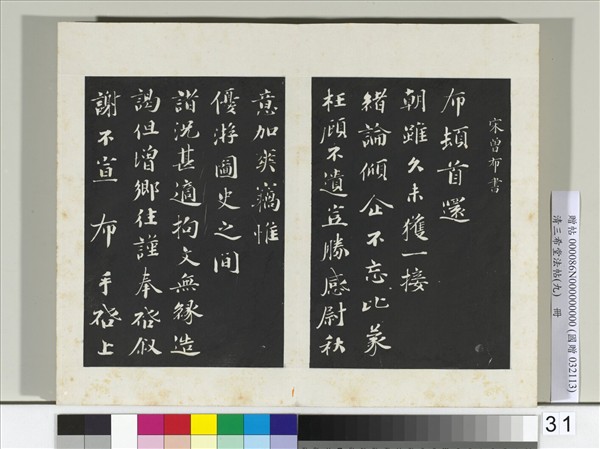 宋曾布書
布頓首還
朝雖久未獲一接
緒論傾企不忘比蒙
枉顧不遺豈勝感尉秋
意加爽竊惟
優游圖史之間
諧況甚適拘文無緣造
謁但增鄉往謹奉啓敘
謝不宣 布 手啓上
贈帖 000086N000000000 (國贈 032113)
清三希堂法帖(九) 冊
31